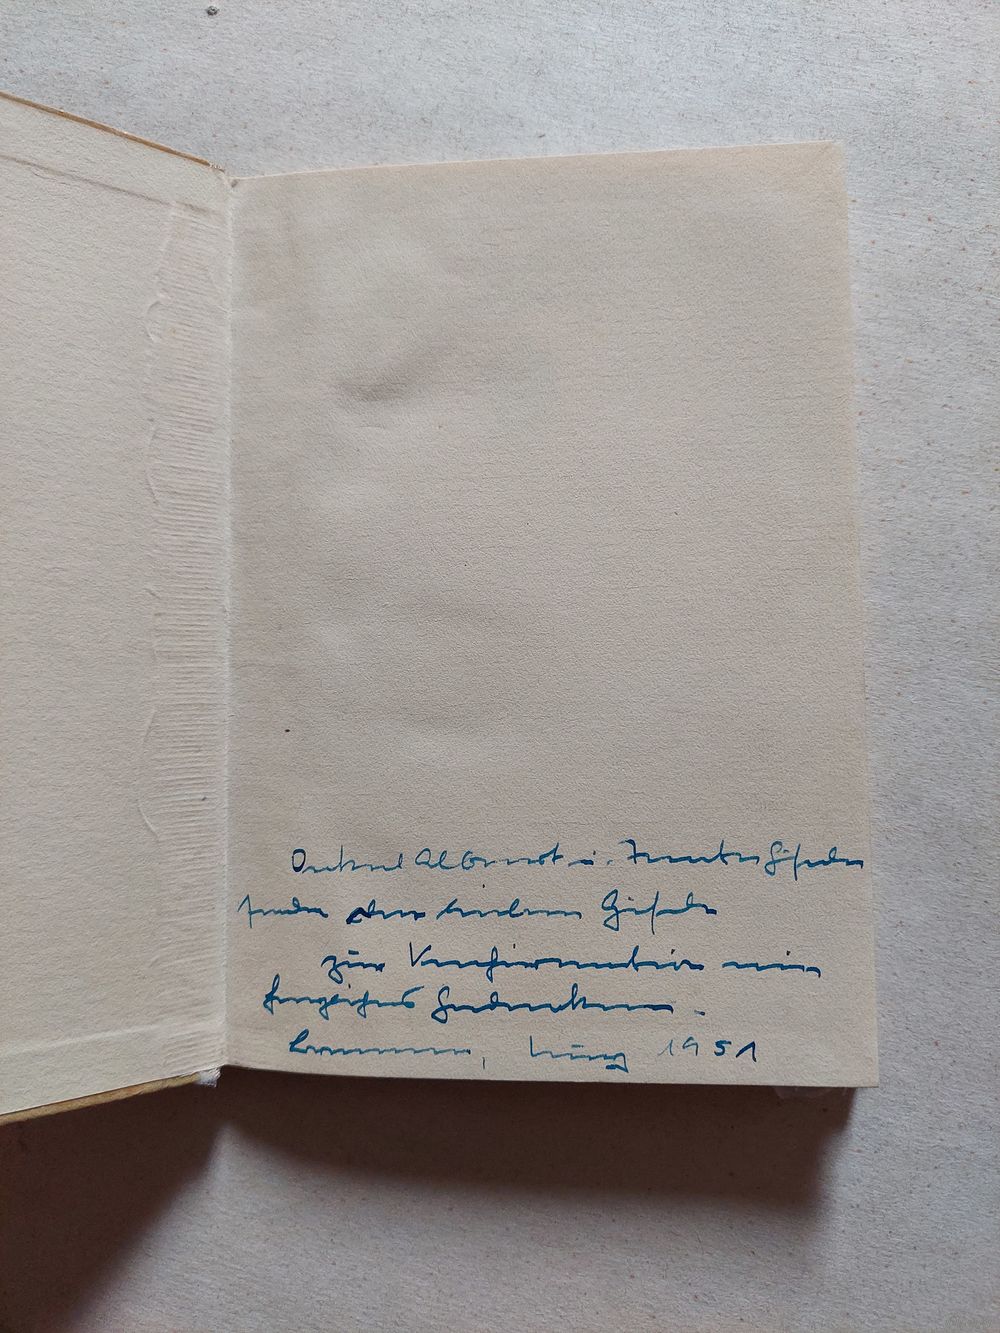 Onkel Albrecht u. Tante Gisela
senden der lieben Gisela
zur Konfirmation ein
herzliches Gedenken.
Bremen, März 1951